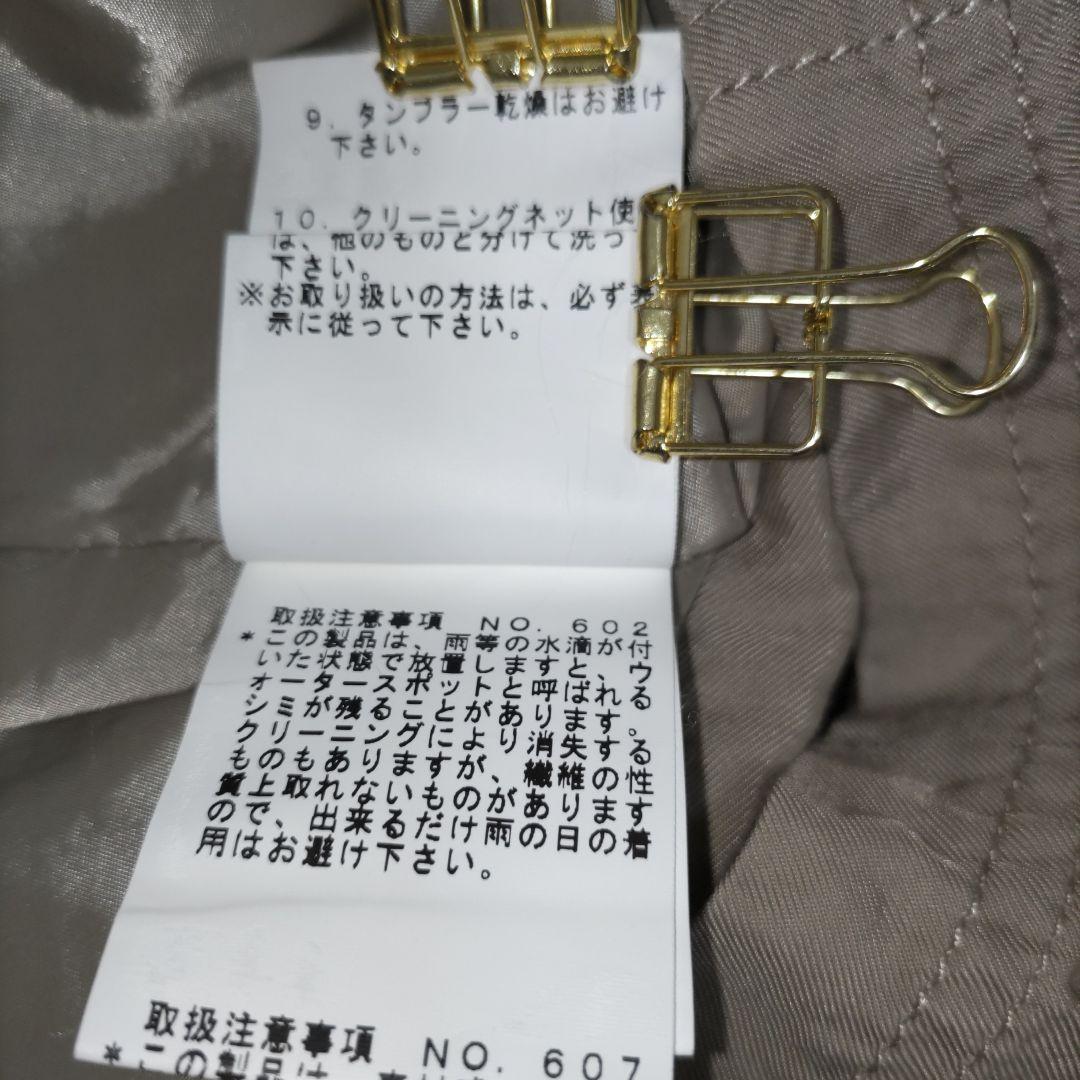 9. タンブラー乾燥はお避け
下さい。
10. クリーニングネット使
は、他のものと分けて洗っ
下さい。
※お取り扱いの方法は、必ず表
示に従って下さい。
取扱注意事項 NO. 602
*この製品は、雨等の水滴が付
いた状態で放置しますと、ウ
ォータースポットと呼ばれる
シミが残ることがあります。
クリーニングにより消失する
ものもありますが、繊維の性
質上取れないものがあります
ので、出来るだけ雨の日の着
用はお避け下さい。
取扱注意事項 NO. 607
*この製品は、素材